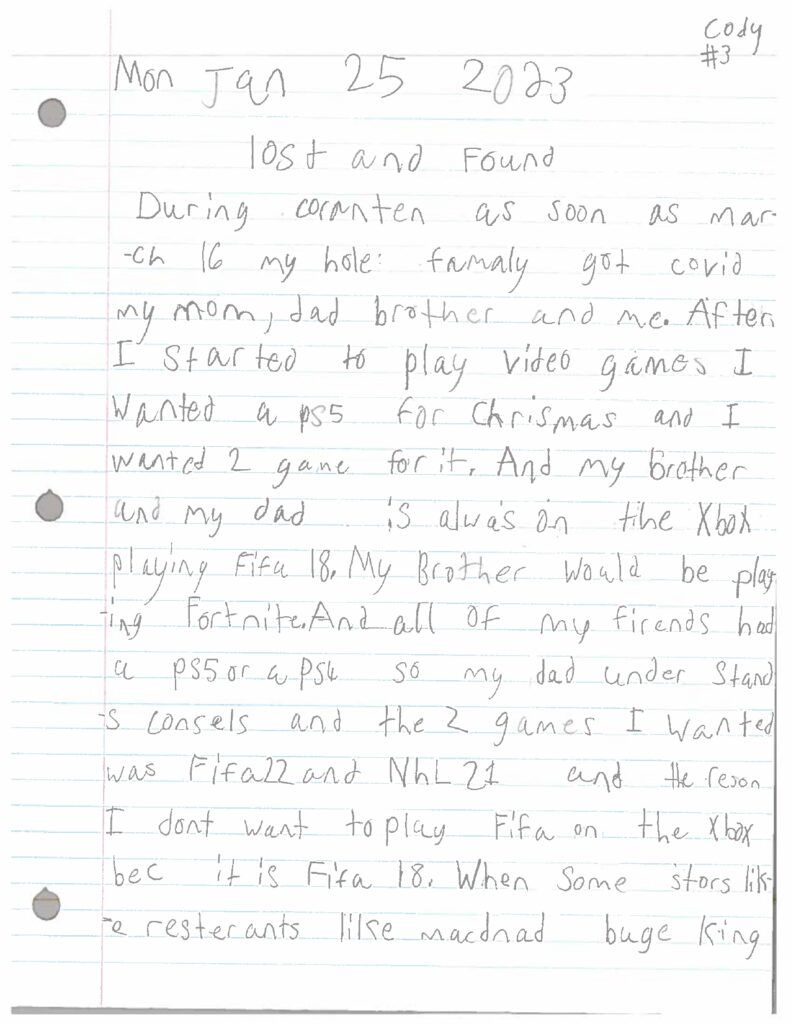 Cody
#3
Mon Jan 25 2023
lost and Found
During coranten as soon as mar-
-ch 16 my hole: famaly got covid
my mom, dad brother and me. After
I started to play video games I
wanted a ps5 for Chrismas and I
wanted 2 game for it. And my brother
and my dad is alwa's on the Xbox
playing Fifa 18. My Brother would be play
-ing Fortnite. And all of my firends had
a ps5 or a ps4 so my dad under stand
-s consels and the 2 games I wanted
was Fifa22 and NhL 21 and the reson
I dont want to play Fifa on the Xbox
bec it is Fifa 18. When some stors lik-
-e resterants like macdnad buge king